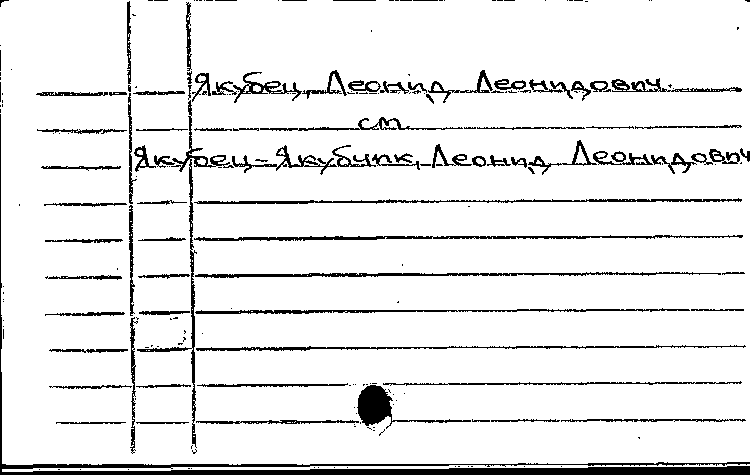 Якубец, Леонид Леонидович.
см.
Якубец-Якубчик, Леонид Леонидович